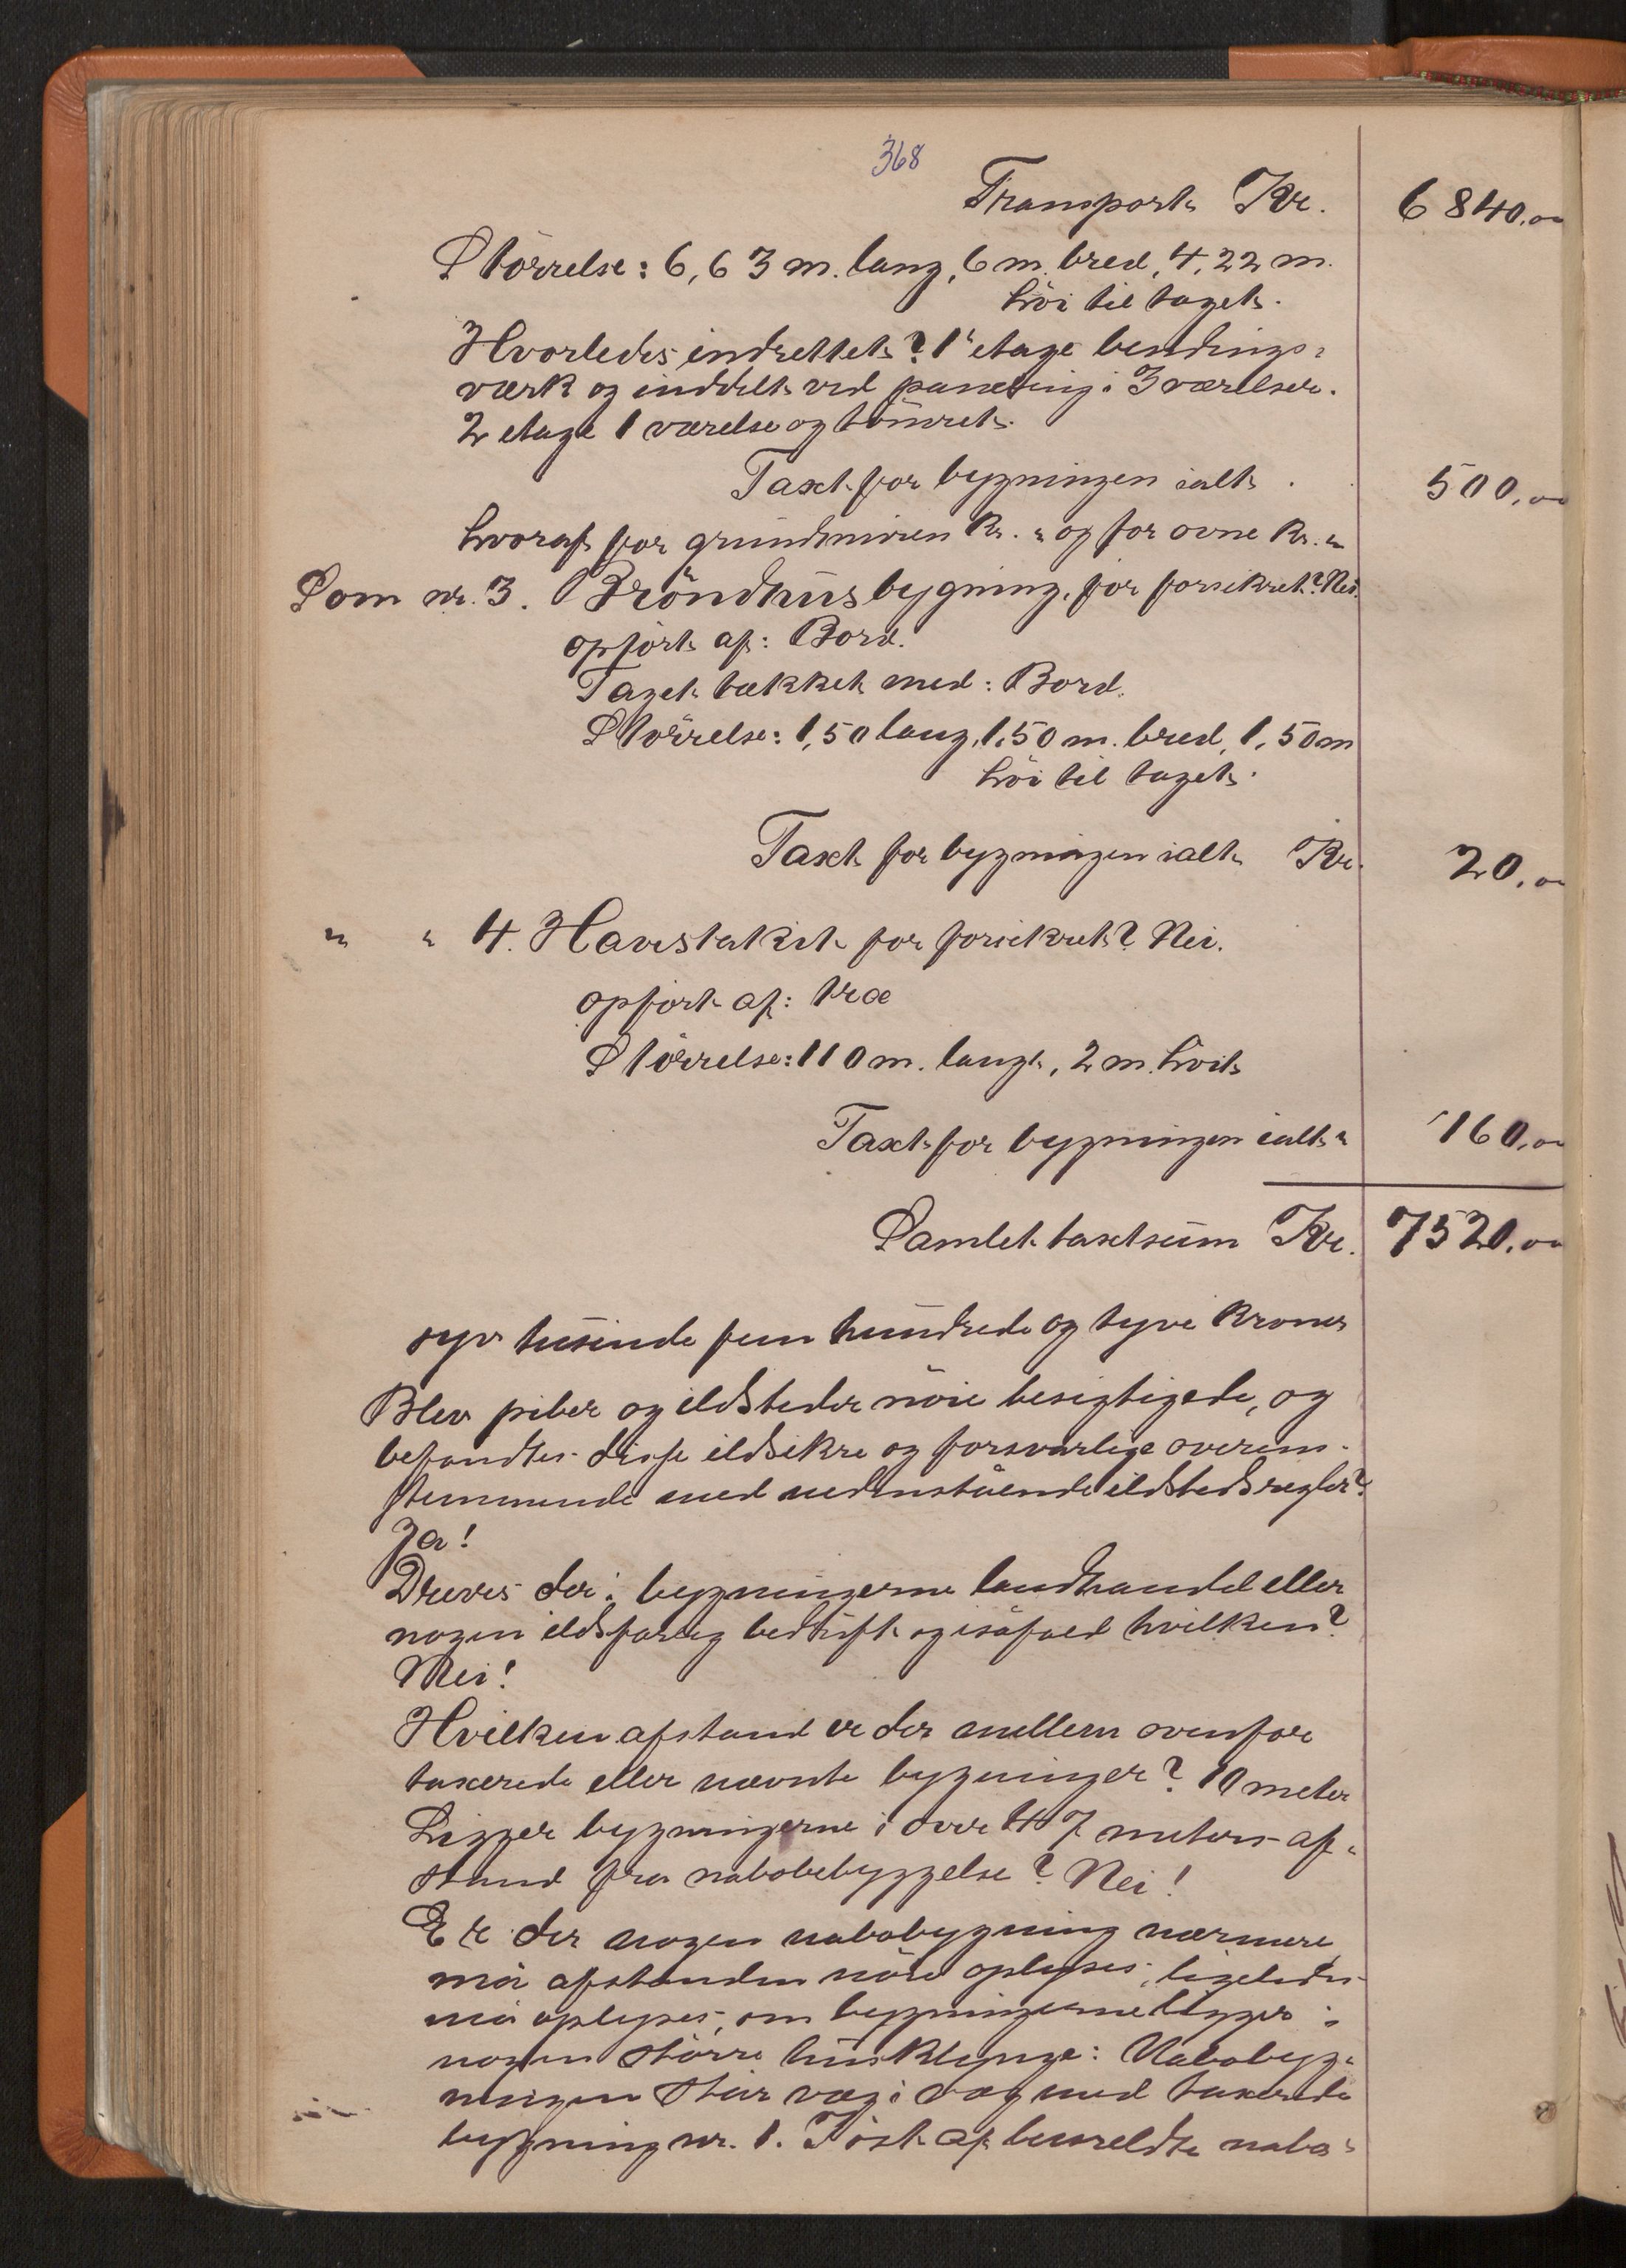 368
Transport Kr. 6840.00
Större­lse: 6,63 m. lang, 6 m. bred, 4,22 m.
höi til taget.
Hvorledes indrettet? 1' etage bindings-
værk og inddelt ved paneling i 3 værelser.
2 etage 1 værelse og tömret.
Taxt for bygningen ialt . . 500,00
hvoraf for grundmuren Kr. " og for ovne Kr. "
Som nr. 3. Bröndhusbygning, för forsikret? Nei.
opfört af: Bord.
Taget tækket med: Bord.
Störrelse: 1,50 lang, 1,50 m. bred, 1,50 m
höi til taget.
Taxt for bygningen ialt Kr. 20,00
" " 4. Havestakit för forsikret? Nei.
opfört af: træ
Störrelse: 110 m. langt, 2 m. höit
Taxt for bygningen ialt " 160,00
Samlet taxtsum Kr. 7520,00
syv tusinde fem hundrede og tyve Kroner
Blev piber og ildsteder nöie besigtigede, og
befandtes disse ildsikre og forsvarlige overens-
stemmende med nedenstående ildstedsregler?
Ja!
Dreves der i bygningerne landhandel eller
nogen ildsfarlig bedrift og isåfald hvilken?
Nei!
Hvilken afstand er der mellem ovenfore
taxerede eller nævnte bygninger? 10 meter
Ligger bygningerne i over 47 meters af-
stand fra nabobebyggelse? Nei!
Er der nogen nabobygning nærmere
må afstanden nöie oplyses, ligeledes
må oplyses, om bygningerne ligger i
nogen större husklynge: Nabobyg-
ningen står væg i væg med taxerede
bygning nr. 1. I öst af bemeldte nabo-